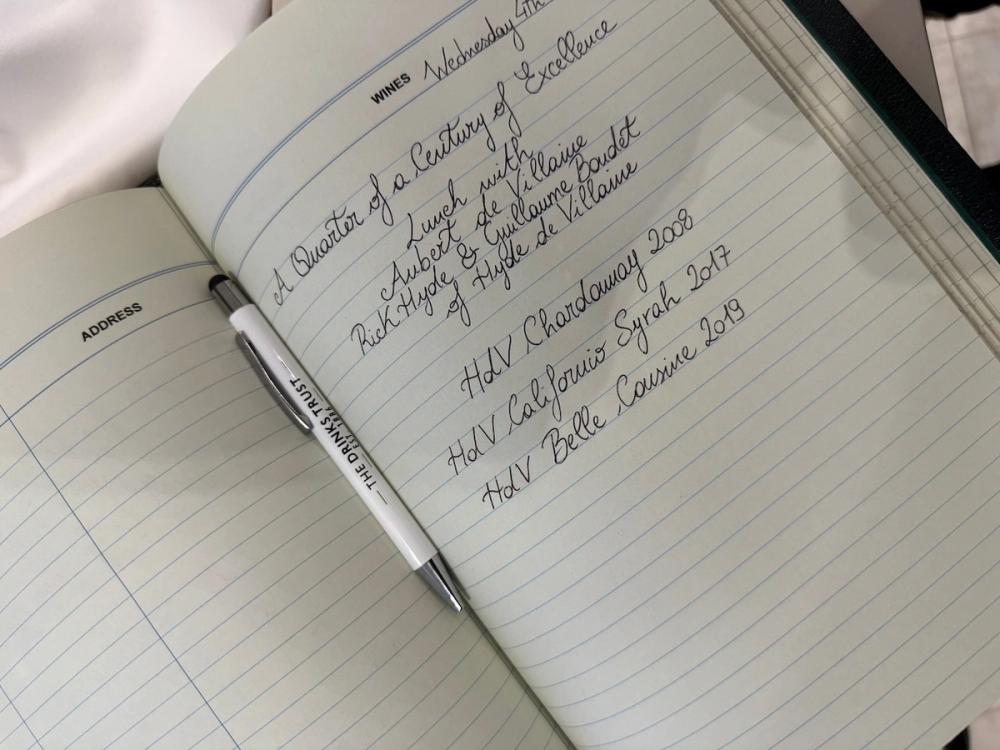 ADDRESS
WINES Wednesday 4th
A Quarter of a Century of Excellence
Lunch with
Aubert de Villaine
Rick Hyde & Guillaume Boudet
of Hyde de Villaine
HdV Chardonnay 2008
HdV Californio Syrah 2017
HdV Belle Cousine 2019
— THE DRINKS TRUST
EST. 1886